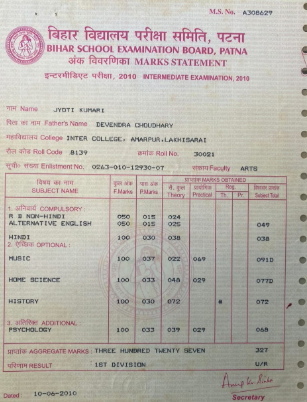 M.S. No. A308629
बिहार विद्यालय परीक्षा समिति, पटना
BIHAR SCHOOL EXAMINATION BOARD, PATNA
अंक विवरणिका MARKS STATEMENT
इन्टरमीडिएट परीक्षा, 2010 INTERMEDIATE EXAMINATION, 2010
नाम Name JYOTI KUMARI
पिता का नाम Father's Name DEVENDRA CHOUDHARY
महाविद्यालय College INTER COLLEGE, AMARPUR,LAKHISARAI
रौल कोड Roll Code 8139 क्रमांक Roll No. 30021
सूची० संख्या Enlistment No. 0263-010-12930-07 संकाय Faculty ARTS
विषय का नाम SUBJECT NAME
पूर्णांक F.Marks
P.Marks
MARKS OBTAINED
Theory
Practical
Subject Total
1. अनिवार्य COMPULSORY:
R B NON-HINDI 050 015 024
ALTERNATIVE ENGLISH 050 015 025 049
HINDI 100 030 038 038
2. ऐच्छिक OPTIONAL:
MUSIC 100 037 022 069 091D
HOME SCIENCE 100 033 048 029 077D
HISTORY 100 030 072 072
3. अतिरिक्त ADDITIONAL:
PSYCHOLOGY 100 033 039 029 068
प्राप्तांक AGGREGATE MARKS : THREE HUNDRED TWENTY SEVEN 327
परिणाम RESULT 1ST DIVISION U/R
Dated 10-06-2010 Secretary